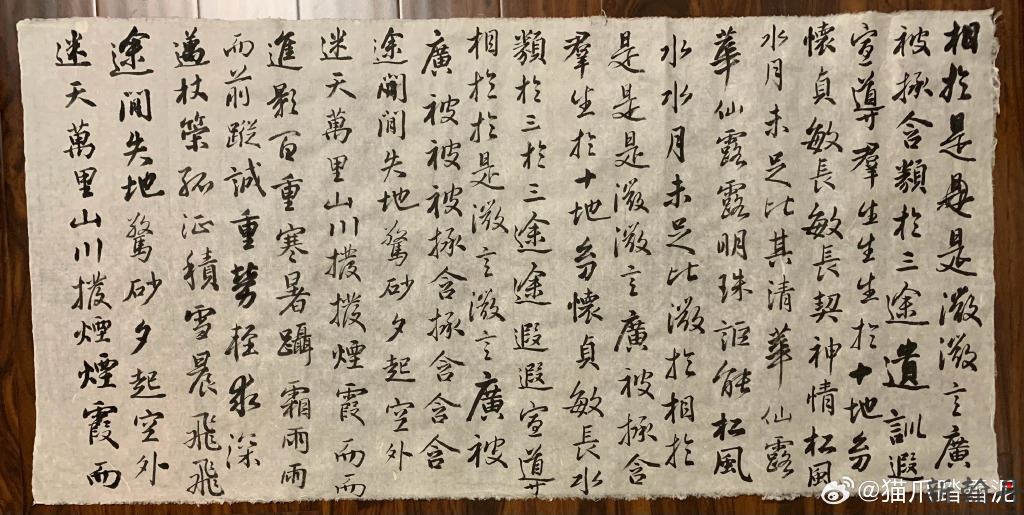 相於是是相是微微言廣
被拯含類於三途遺訓遐
宣導群生生生於十地分
懷貞敏長敏長契神情松風
水月未足比其清華仙露
華仙露露明珠誰能松風
水水月未足比微於相於
是是是微微言廣被拯含
羣生於十地分懷貞敏長水
類於三於三途途遐遐宣導
相於於是微言微言廣被
廣被被被拯含拯含含含
途間間失地驚砂夕起空外
迷天萬里山川撥撥煙霞而而
進影百重寒暑躡霜雨雨
而前蹤誠重勞輕求深
邁杖策孤征積雪晨飛飛
途間失地驚砂夕起空外
迷天萬里山川撥煙煙霞而
@猫爪踏雪泥